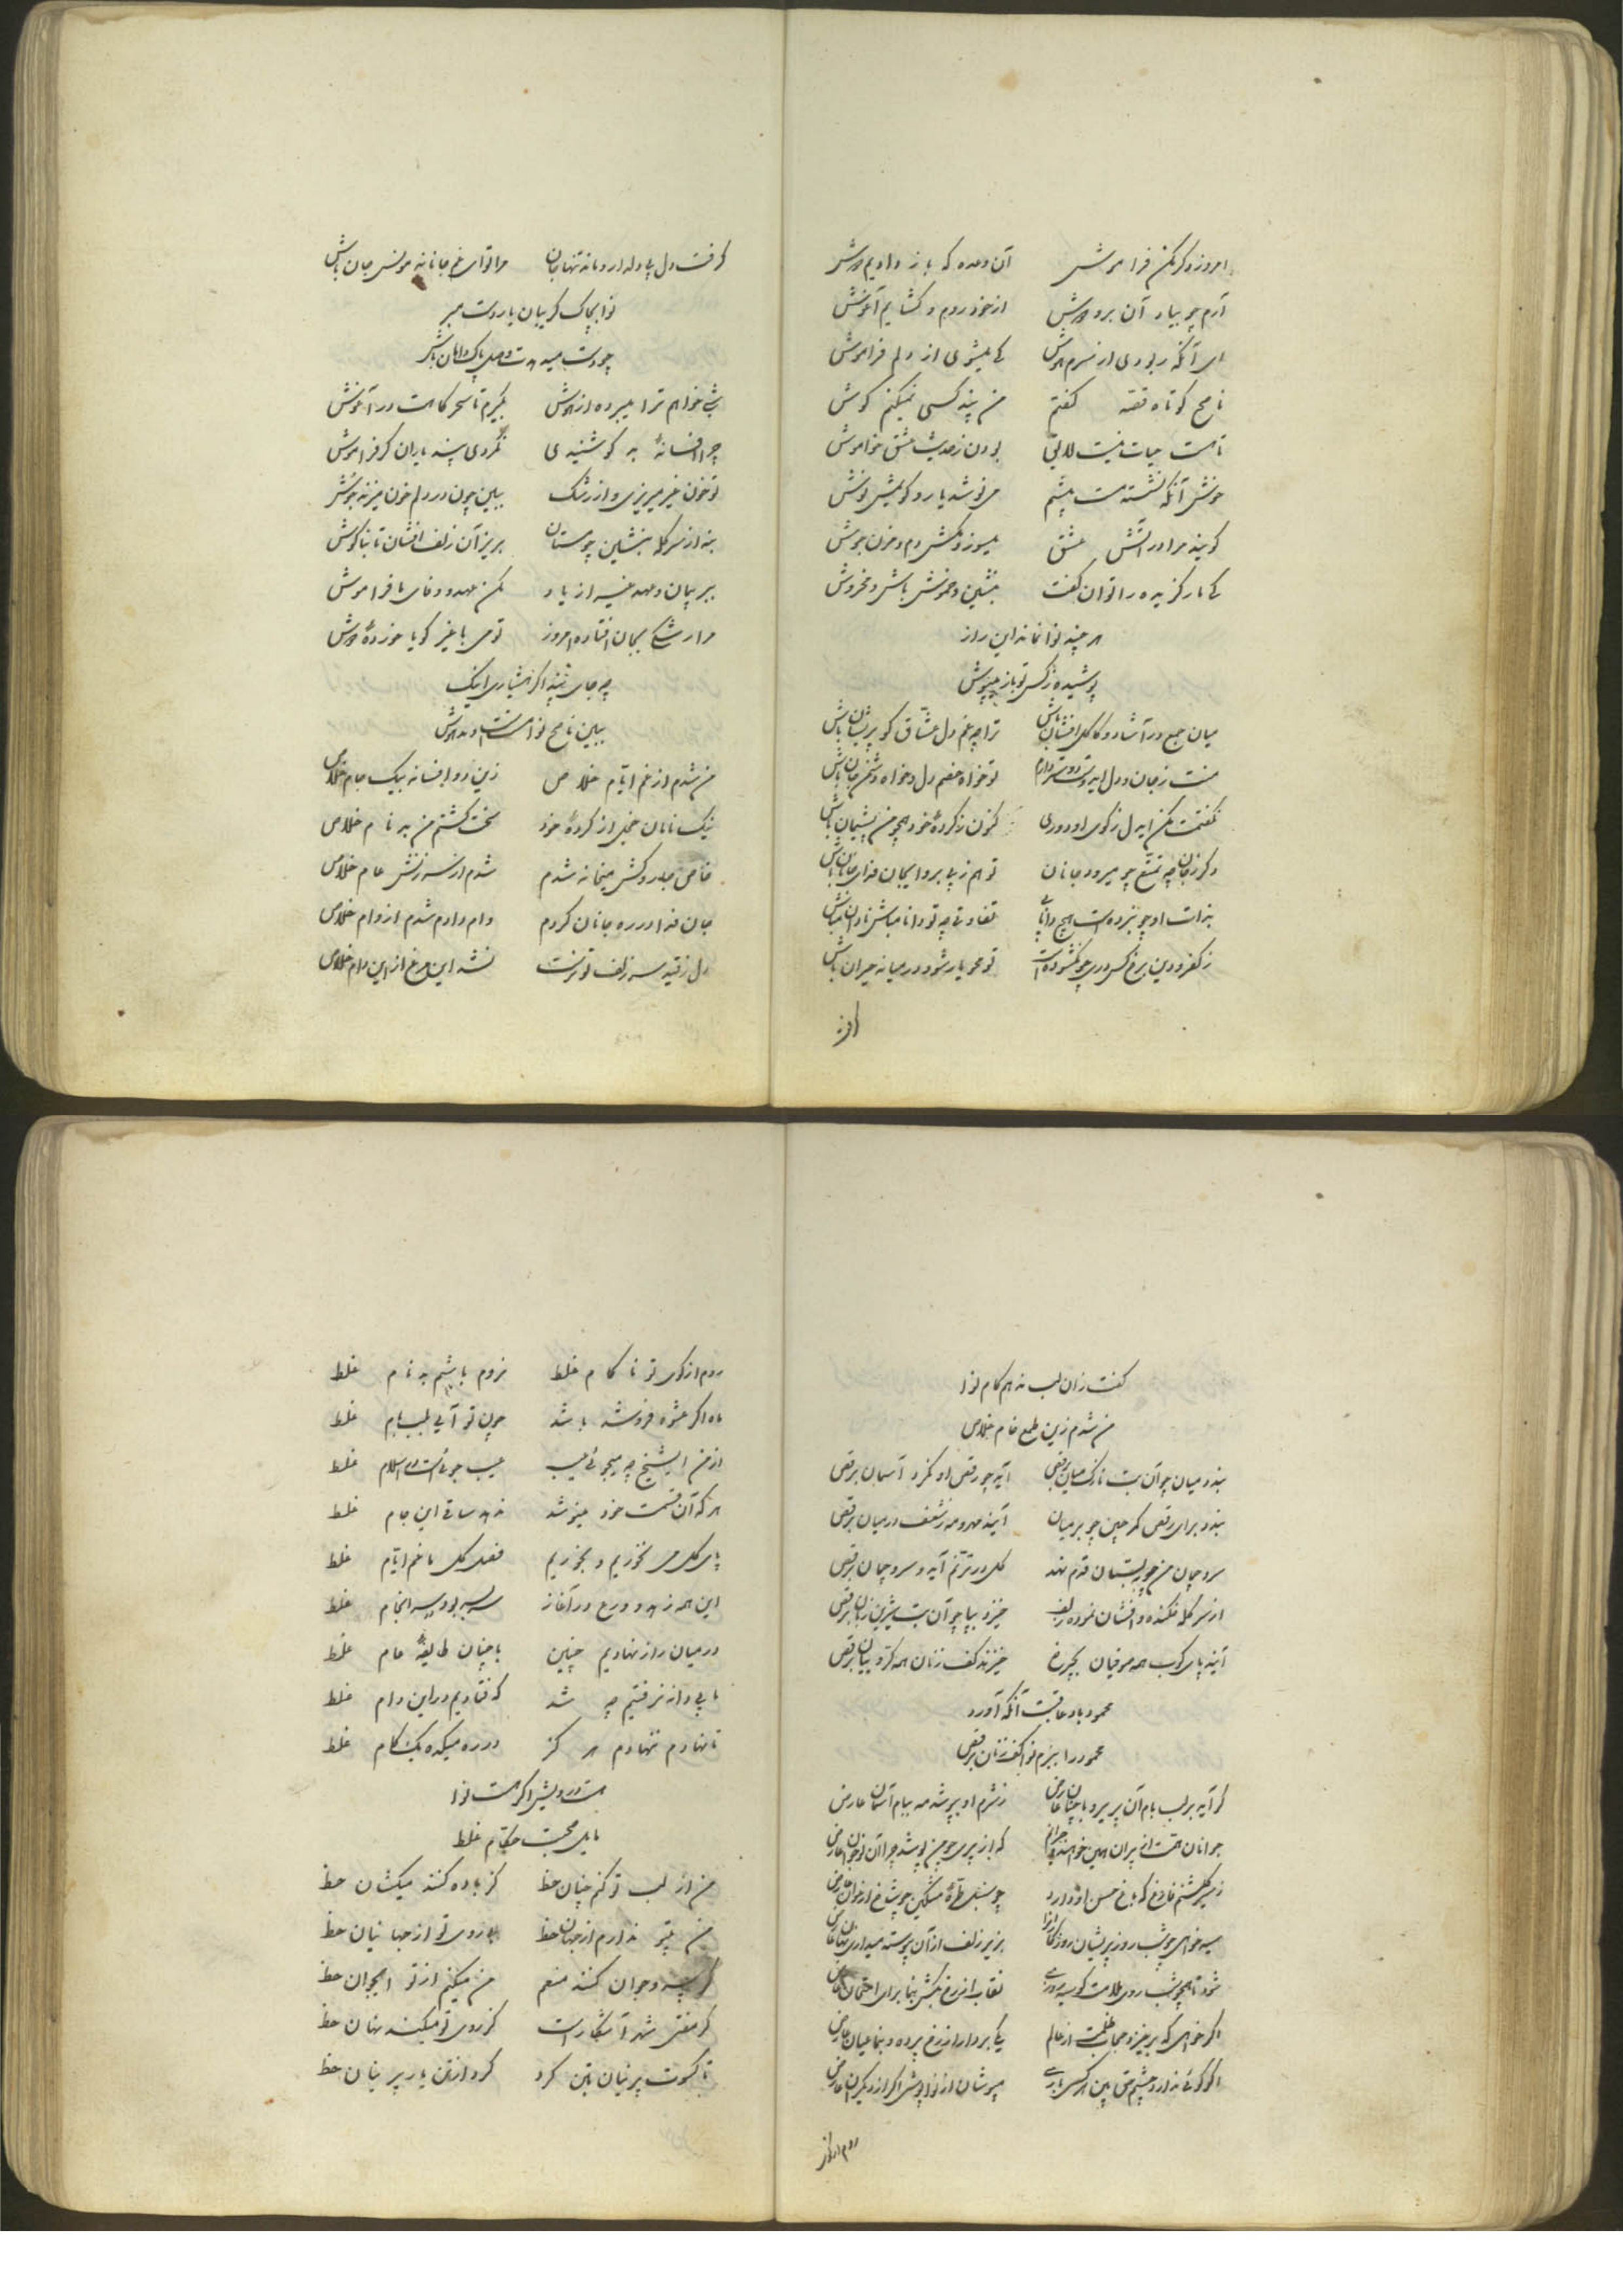 امروز دگر مکن فراموش آن وعده که باز دادیم دوش
آرم چو بیاد آن بر و دوش از خود روم و گشایم آغوش
ای آنکه ربودی از سرم هوش کی میشوی از دلم فراموش
ناصح کوتاه قصه گفتم من پند کسی نمیکنم گوش
تا هست حیات نیست لایق بودن ز حدیث عشق خاموش
خوش آنکه نشسته مست پیشم می نوشد یار و گویمش نوش
گویند مرا در آتش عشق میسوز و مکش دم و مزن جوش
کی مار گزیده را توان گفت بنشین و خموش باش و مخروش
هر چند نوا نماند این راز
پوشیده ز کس تو باز میپوش
میان جمع درآ شاد و کاکل افشان باش ترا چه غم دل عشاق گو پریشان باش
منت ز جان و دل ایدوست دوستر دارم تو خواه خصم دل و خواه دشمن جان باش
نگفتمت مکن ایدل ز کوی او دوری کنون ز کردهٔ خود همچو من پشیمان باش
دگر ز جان چه تمتع چو میرود جانان تو هم ز پی برو ایجان فدای جانان باش
بذات او چو نبرده است هیچ دانا پی تفاوتی چه تو دانا مباش نادان باش
ز کفر و دین برخ کس دری چو نگشوده است تو محو یار شو و در میانه حیران باش
گرفت
گرفت دل پی دلدار و ماند تنها جان مرا تو ای غم جانانه مونس جان باش
نوا بچاک گریبان یار دست مبر
چو دست میدهدت وصل پاک دامان باش
شبی خواهم ترا میبرده از هوش بگیرم تا سحرگه مست در آغوش
چرا افسانهٔ بدگو شنیدی نکردی پند یاران گر فراموش
تو خون غیر میریزی و از رشک ببین چون در دلم خون میزند جوش
بنه از سر کله بنشین چو مستان بریز آن زلف افشان تا بناگوش
ببر پیمان و عهد غیر از یاد مکن عهد و وفای ما فراموش
مرا رشکی بجان افتاده امروز تو می با غیر گویا خوردهٔ دوش
چه جای پند اگر هشیاری اینک
ببین ناصح نوا مست است و مدهوش
من شدم از غم ایام خلاص زین دو افسانه بیک جام خلاص
نیک نامان خجل از کردهٔ خود سخت گشتم من بدنام خلاص
خاص جاروکش میخانه شدم شدم از سرزنش عام خلاص
جان فدا در ره جانان کردم وام دادم شدم از وام خلاص
دل ز قید سر زلف تو نرست نشد این مرغ از این دام خلاص
گفت زان لب ندهم کام نوا
من شدم زین طمع خام خلاص
بندد میان چو آن بت نازک میان برقص آید چو رقص او نگرد آسمان برقص
بندد برای رقص کمر چین چو بر میان آیند مهر و مه ز شعف در میان برقص
سرو چمان من چو ببستان قدم نهد گل در ترنم آید و سرو چمان برقص
از سر کله فکنده و افشان نموده زلف خیزد بپا چو آن بت شیرین زبان برقص
آیند پای کوب همه صوفیان بچرخ خیزند کف زنان همه کروبیان برقص
محمود باد عاقبت آنکه آورد
محمود را ببزم نوا کف زنان برقص
گر آید بر لب بام آن پریرو با چنان عارض ز شرم او بپوشد مه ببام آسمان عارض
جوانان همت از پیران همین خواهند و میدانم که از پیری چو من پوشد چرا آن نوجوان عارض
ز سیر گلشنم فارغ که باغ حسن او دارد چو سنبل طرهٔ مشکین چو شاخ ارغوان عارض
سیه خواهی چو شب روز پریشان روزگاران را بزیر زلف از آن پیوسته میداری نهان عارض
شود تا همچو شب روی ملامت گو سیه روزی نقاب از رخ بکش بنما برای امتحان عارض
اگر خواهی که برخیزد حجاب ظلمت از عالم یکی بردار از رخ پرده و بنما عیان عارض
اگر گوئی ندارد چشم حق بین هر کسی باری مپوشان از نوا پوشی اگر از دیگران عارض
روم از کوی
روم از کوی تو ناکام غلط نروم باشم بدنام غلط
ماه اگر عشوه فروشد باشد چون تو آیی بلب بام غلط
از من ایشیخ چه میجوئی عیب عیب جوئیست در اسلام غلط
هر که آن قسمت خود مینوشد ندهد ساقی این جام غلط
پای گل می نخوریم و بخوریم فصل گل ما غم ایام غلط
این همه زهد و ورع در آغاز سربسر بود سرانجام غلط
در میان راز نهادیم چنین با چنان طایفهٔ عام غلط
ما پی دانه نرفتیم چه شد که فتادیم در این دام غلط
تا نهادم ننهادم هرگز در ره میکده یک گام غلط
مست درویش اگر هست نوا
من از لب تو کنم چنان حظ کز باده کنند میکشان حظ
من بیتو ندارم از جهان حظ با روی تو از جهانیان حظ
گر پیر و جوان کنند منعم من میکنم از تو ایجوان حظ
گر مفتی شهر آشکار است کز روی تو میکند نهان حظ
تا کسوت پرنیان بتن کرد کرد از تن یار پرنیان حظ